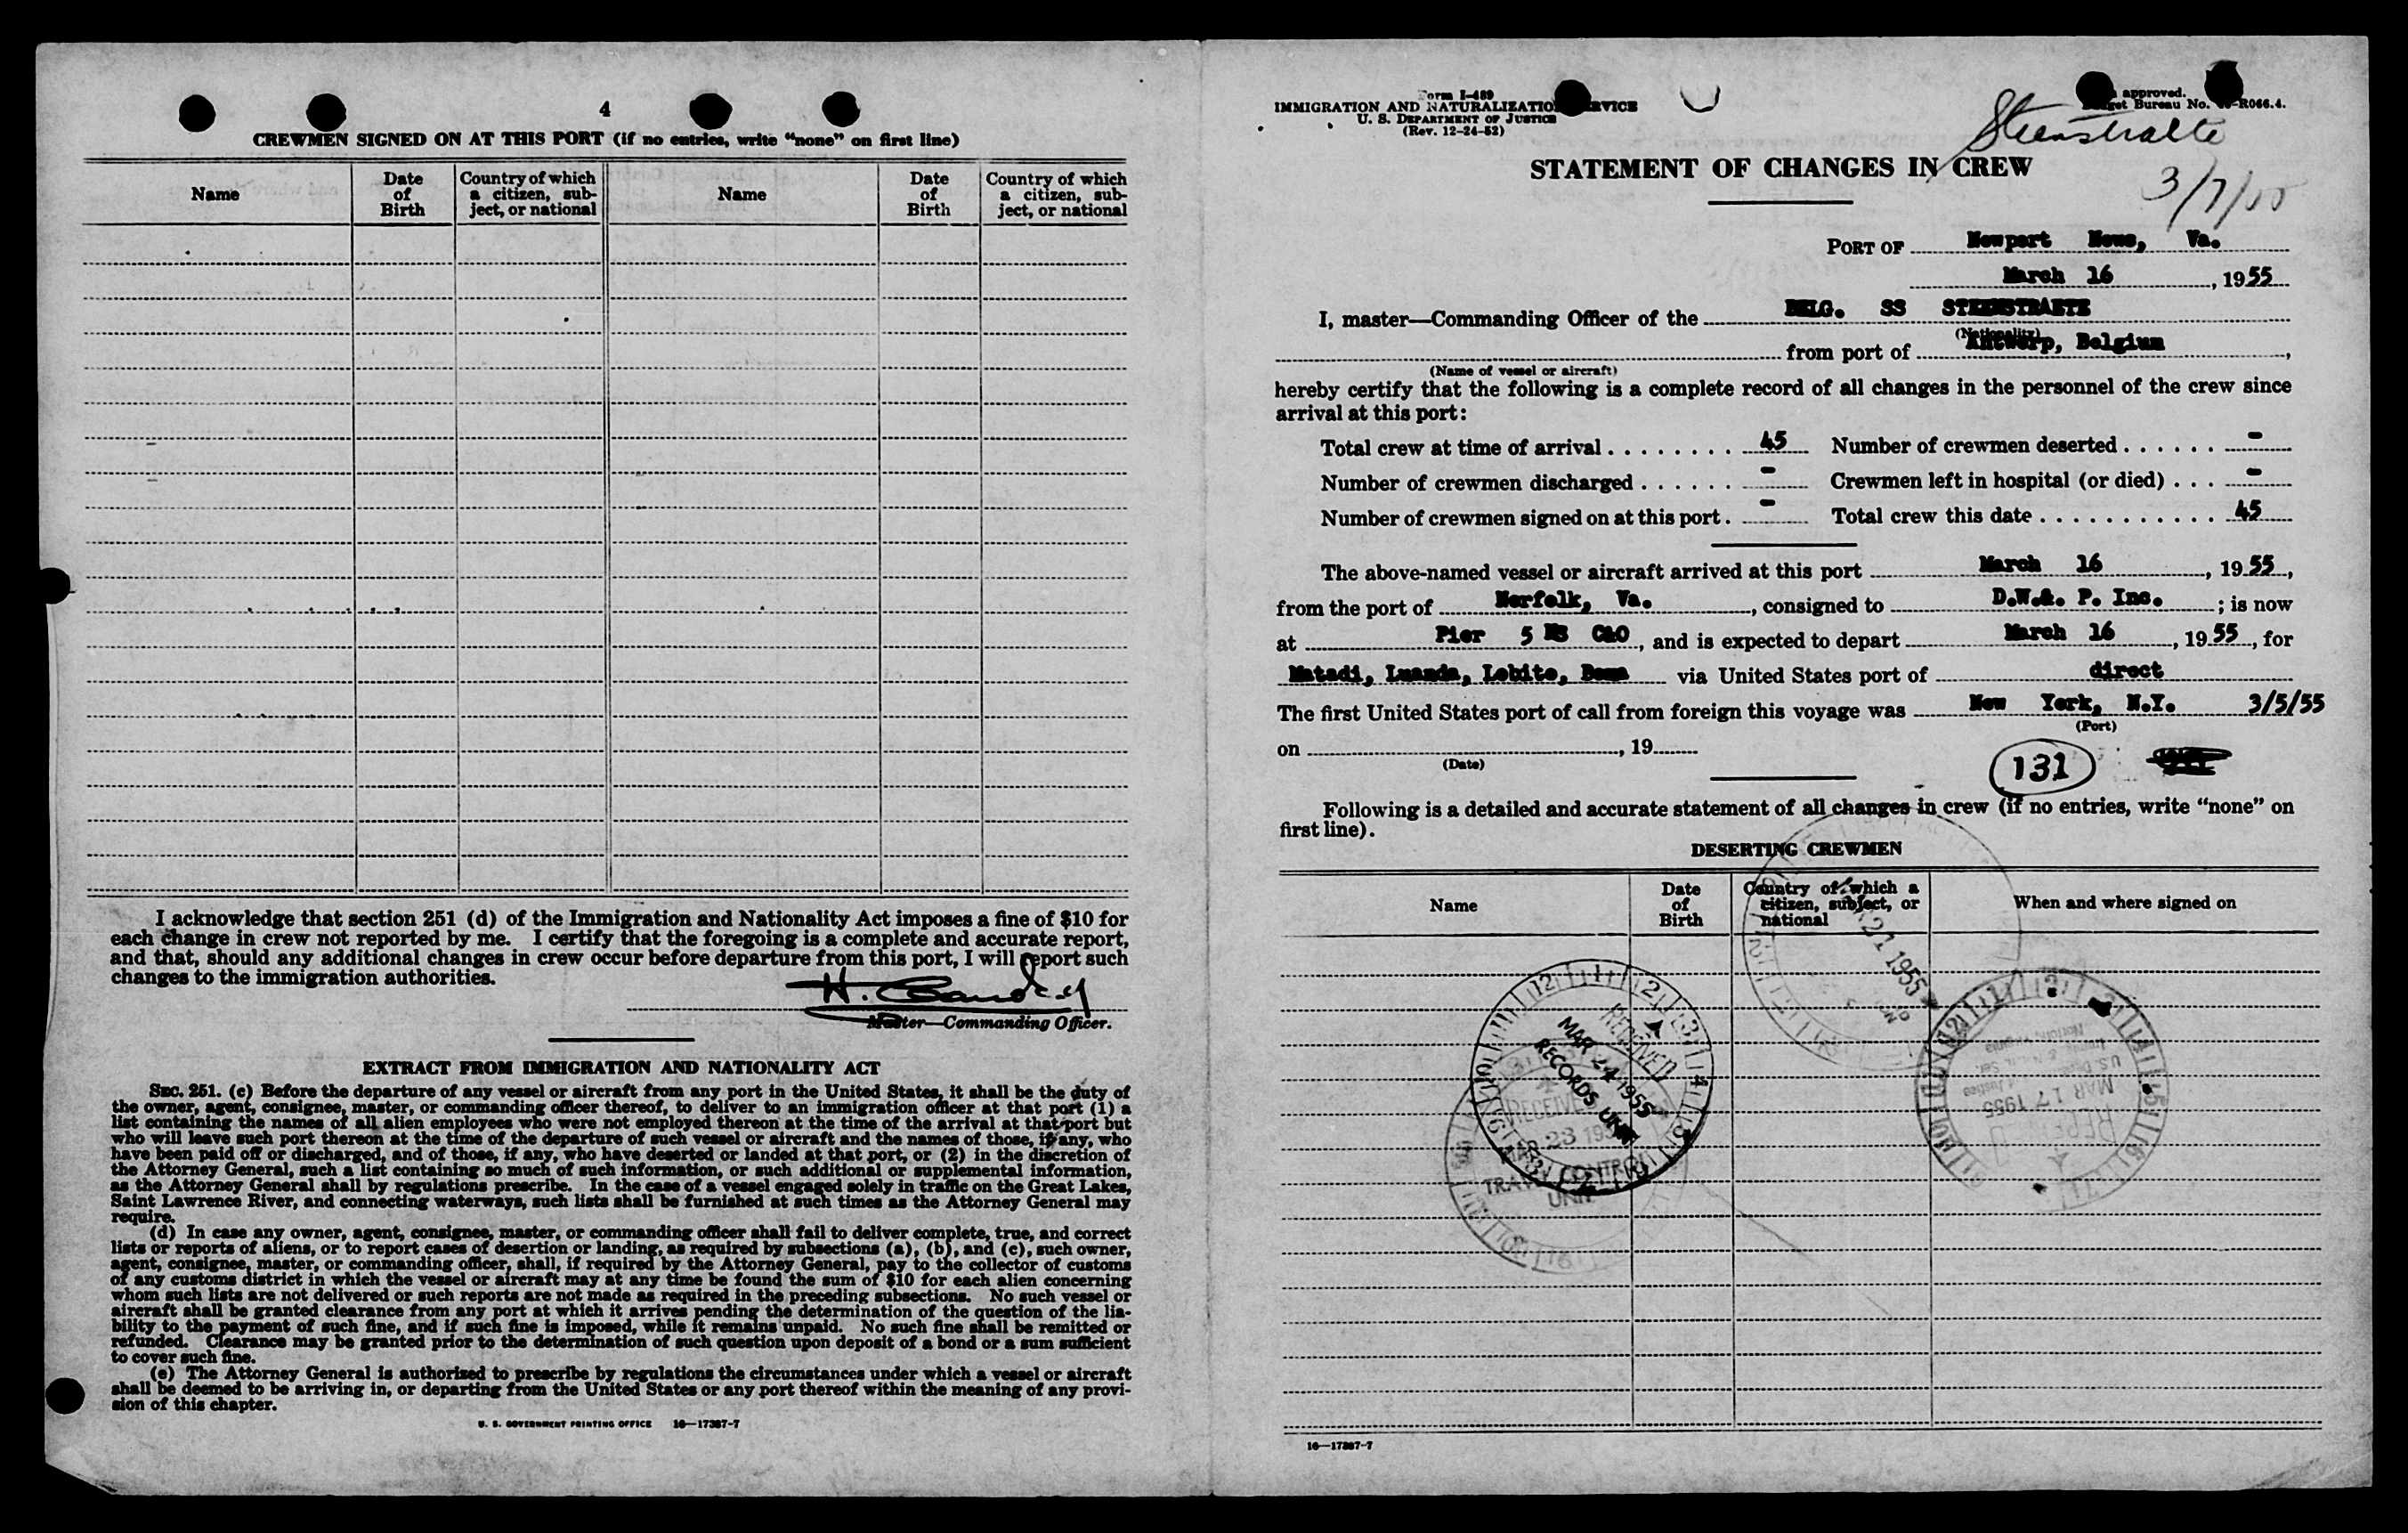 4
CREWMEN SIGNED ON AT THIS PORT (if no entries, write "none" on first line)
Name
Date of Birth
Country of which a citizen, subject, or national
Name
Date of Birth
Country of which a citizen, subject, or national
I acknowledge that section 251 (d) of the Immigration and Nationality Act imposes a fine of $10 for
each change in crew not reported by me. I certify that the foregoing is a complete and accurate report,
and that, should any additional changes in crew occur before departure from this port, I will report such
changes to the immigration authorities.
H.
Master—Commanding Officer.
EXTRACT FROM IMMIGRATION AND NATIONALITY ACT
SEC. 251. (c) Before the departure of any vessel or aircraft from any port in the United States, it shall be the duty of
the owner, agent, consignee, master, or commanding officer thereof, to deliver to an immigration officer at that port (1) a
list containing the names of all alien employees who were not employed thereon at the time of the arrival at that port but
who will leave such port thereon at the time of the departure of such vessel or aircraft and the names of those, if any, who
have been paid off or discharged, and of those, if any, who have deserted or landed at that port, or (2) in the discretion of
the Attorney General, such a list containing so much of such information, or such additional or supplemental information,
as the Attorney General shall by regulations prescribe. In the case of a vessel engaged solely in traffic on the Great Lakes,
Saint Lawrence River, and connecting waterways, such lists shall be furnished at such times as the Attorney General may
require.
(d) In case any owner, agent, consignee, master, or commanding officer shall fail to deliver complete, true, and correct
lists or reports of aliens, or to report cases of desertion or landing, as required by subsections (a), (b), and (c), such owner,
agent, consignee, master, or commanding officer, shall, if required by the Attorney General, pay to the collector of customs
of any customs district in which the vessel or aircraft may at any time be found the sum of $10 for each alien concerning
whom such lists are not delivered or such reports are not made as required in the preceding subsections. No such vessel or
aircraft shall be granted clearance from any port at which it arrives pending the determination of the question of the lia-
bility to the payment of such fine, and if such fine is imposed, while it remains unpaid. No such fine shall be remitted or
refunded. Clearance may be granted prior to the determination of such question upon deposit of a bond or a sum sufficient
to cover such fine.
(e) The Attorney General is authorized to prescribe by regulations the circumstances under which a vessel or aircraft
shall be deemed to be arriving in, or departing from the United States or any port thereof within the meaning of any provi-
sion of this chapter.
U. S. GOVERNMENT PRINTING OFFICE 16—17387-7
Form I-489
IMMIGRATION AND NATURALIZATION SERVICE
U. S. DEPARTMENT OF JUSTICE
(Rev. 12-24-52)
approved.
Bureau No. -R066.4.
Steenstraete
3/7/55
STATEMENT OF CHANGES IN CREW
PORT OF Newport News, Va.
March 16, 1955
I, master—Commanding Officer of the BELG. SS STEENSTRAETE
(Nationality)
from port of Antwerp, Belgium,
(Name of vessel or aircraft)
hereby certify that the following is a complete record of all changes in the personnel of the crew since
arrival at this port:
Total crew at time of arrival........ 45 Number of crewmen deserted...... -
Number of crewmen discharged...... - Crewmen left in hospital (or died)... -
Number of crewmen signed on at this port. - Total crew this date........... 45
The above-named vessel or aircraft arrived at this port March 16, 1955,
from the port of Norfolk, Va., consigned to D.W.&. P. Inc.; is now
at Pier 5 NS C&O, and is expected to depart March 16, 1955, for
Matadi, Luanda, Lobito, Boma via United States port of direct
The first United States port of call from foreign this voyage was New York, N.Y. 3/5/55
(Port)
on , 19
(Date)
131
Following is a detailed and accurate statement of all changes in crew (if no entries, write "none" on
first line).
DESERTING CREWMEN
Name
Date of Birth
Country of which a citizen, subject, or national
When and where signed on
21 1955
RECEIVED
MAR 24 1955
RECORDS UNIT
RECEIVED
MAR 23 195
CONTROL
UNIT
MAR 17 1955
16—17387-7